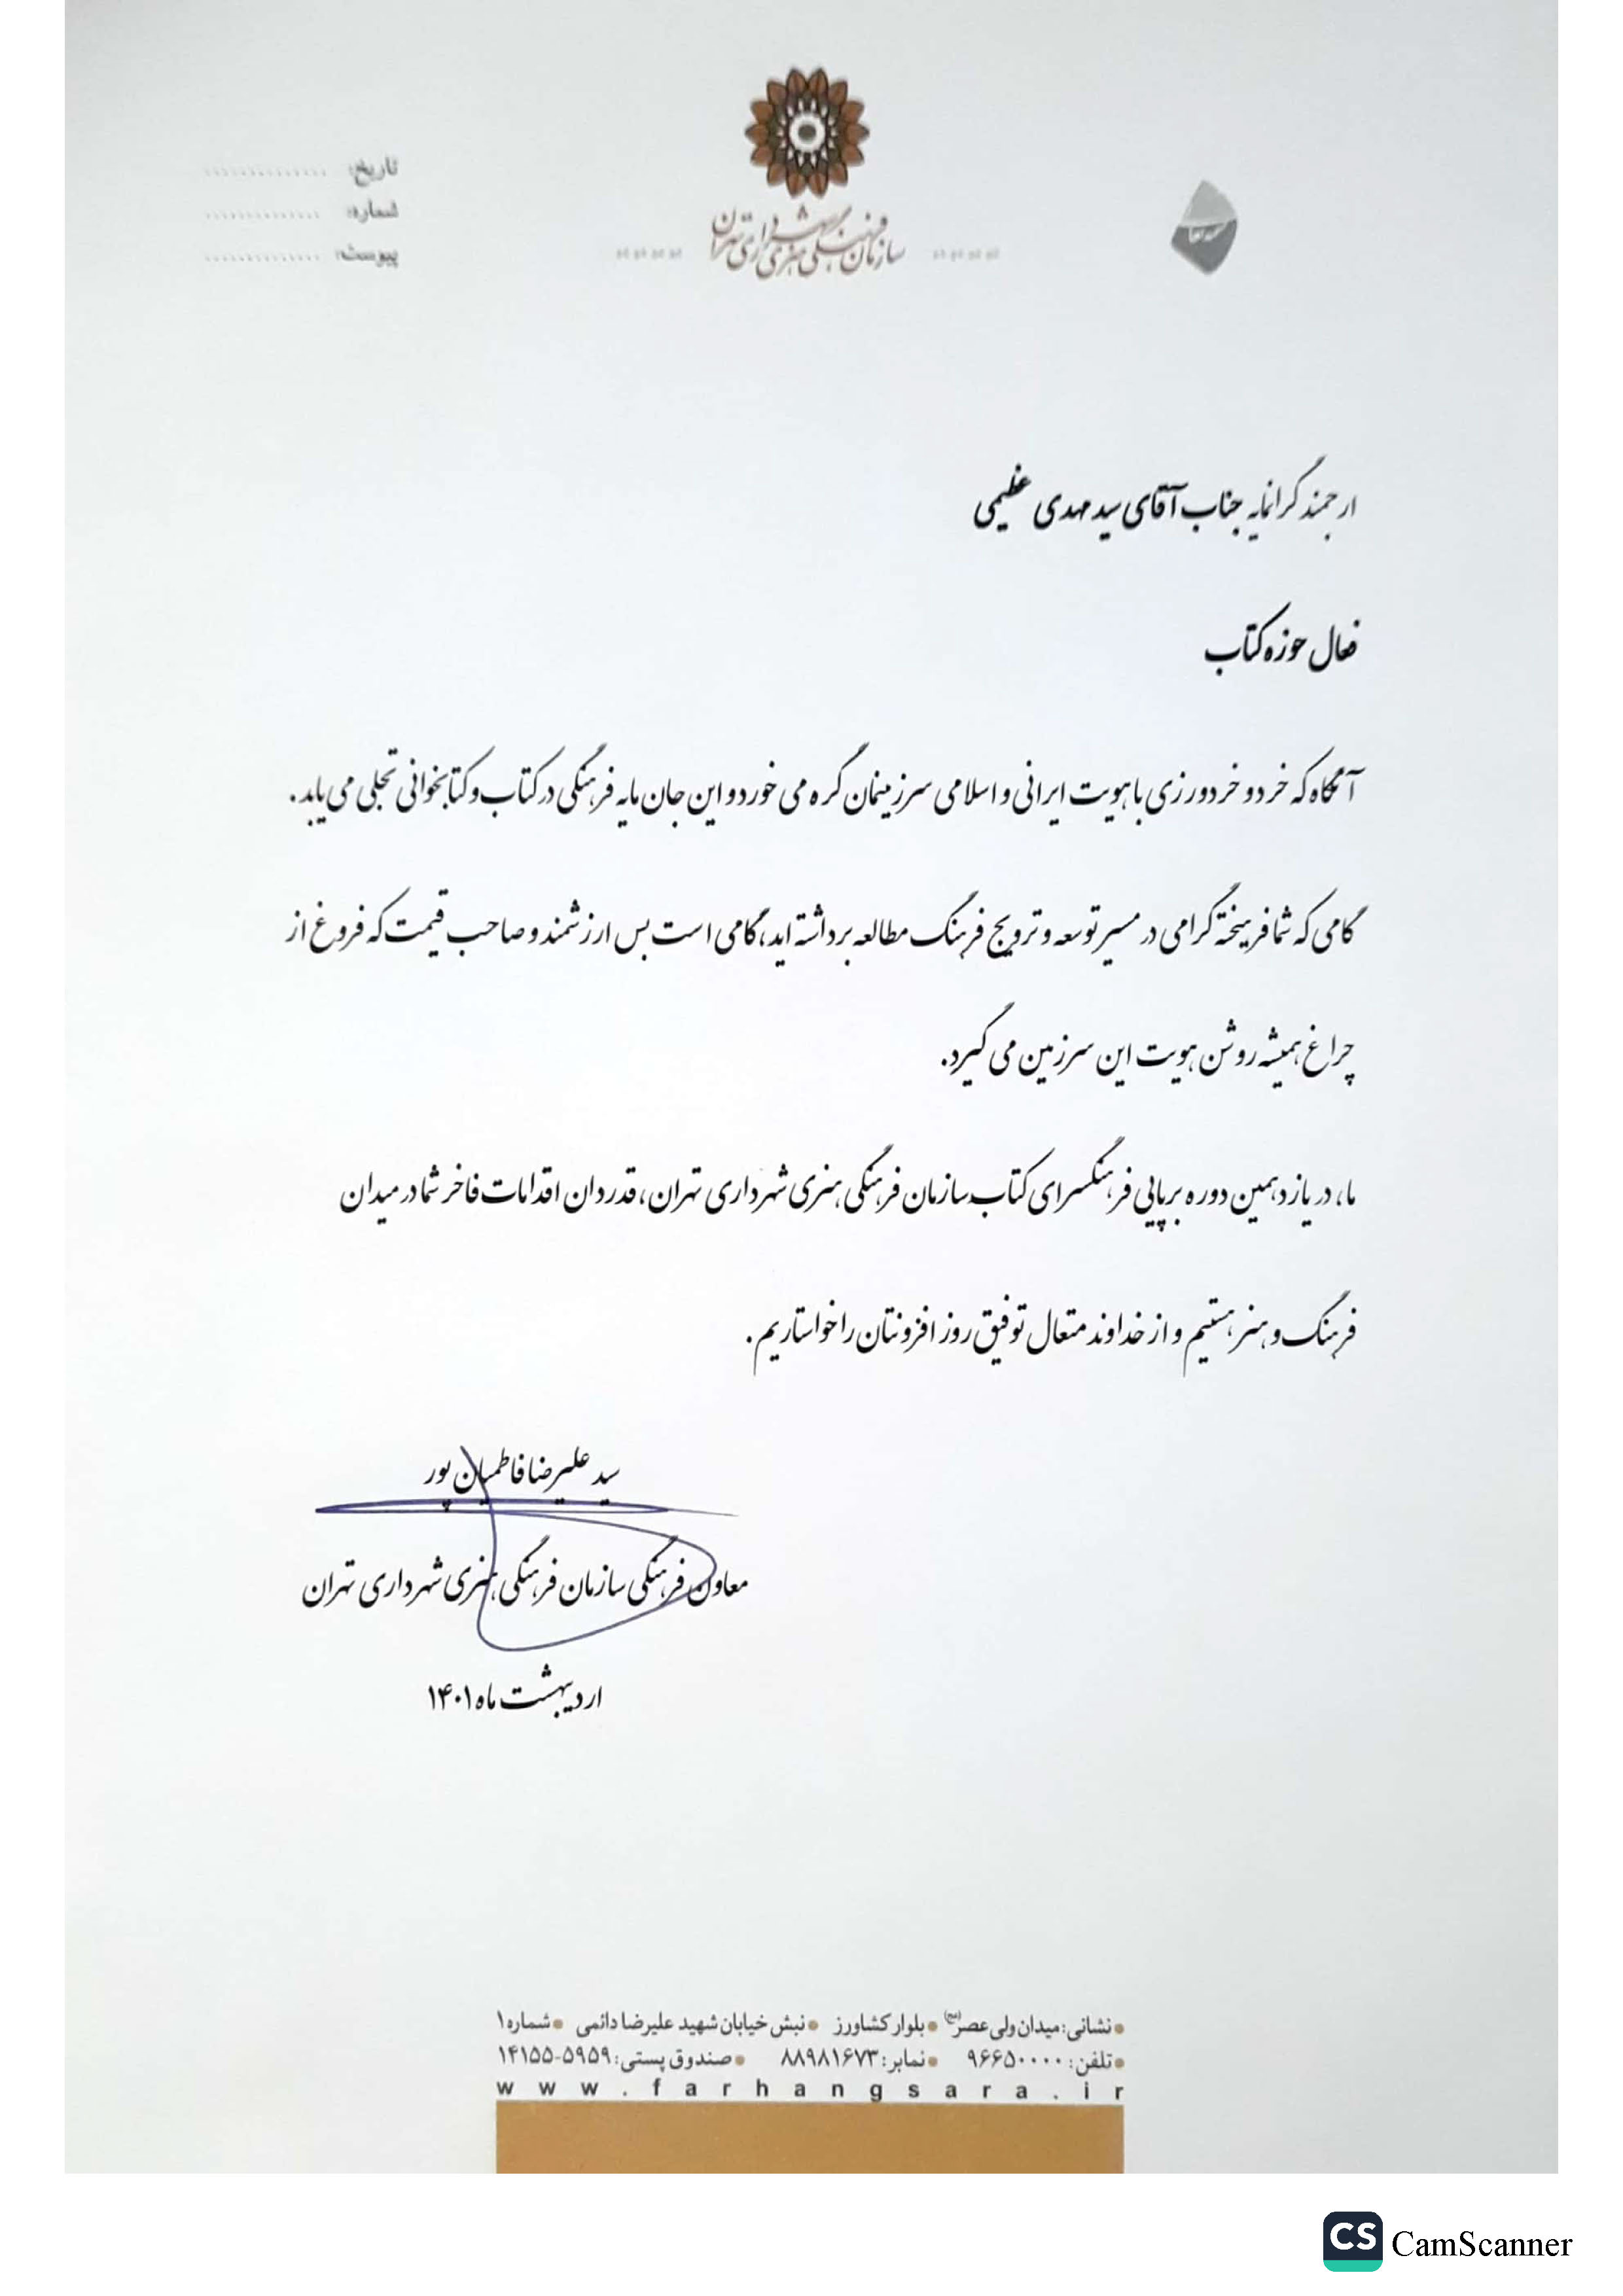 تاریخ: ..............
شماره: ..............
پیوست: ..............
سازمان فرهنگی هنری شهرداری تهران
ارجمند گرانمایه جناب آقای سید مهدی عظیمی
فعال حوزه کتاب
آنگاه که خرد و خردورزی با هویت ایرانی و اسلامی سرزمینمان گره می خورد و این جان مایه فرهنگی در کتاب و کتابخوانی تجلی می یابد.
گامی که شما فرهیخته گرامی در مسیر توسعه و ترویج فرهنگ مطالعه برداشته اید، گامی است بس ارزشمند و صاحب قیمت که فروغ از
چراغ همیشه روشن هویت این سرزمین می گیرد.
ما، در یازدهمین دوره برپایی فرهنگسرای کتاب سازمان فرهنگی هنری شهرداری تهران، قدردان اقدامات فاخر شما در میدان
فرهنگ و هنر هستیم و از خداوند متعال توفیق روز افزونتان را خواستاریم.
سید علیرضا فاطمیان پور
معاون فرهنگی سازمان فرهنگی هنری شهرداری تهران
اردیبهشت ماه ۱۴۰۱
• نشانی: میدان ولی عصر(عج) • بلوار کشاورز • نبش خیابان شهید علیرضا دائمی • شماره ۱
• تلفن: ۹۶۶۵۰۰۰۰ • نمابر: ۸۸۹۸۱۶۷۳ • صندوق پستی: ۵۹۵۹-۱۴۱۵۵
www.farhangsara.ir
CS CamScanner